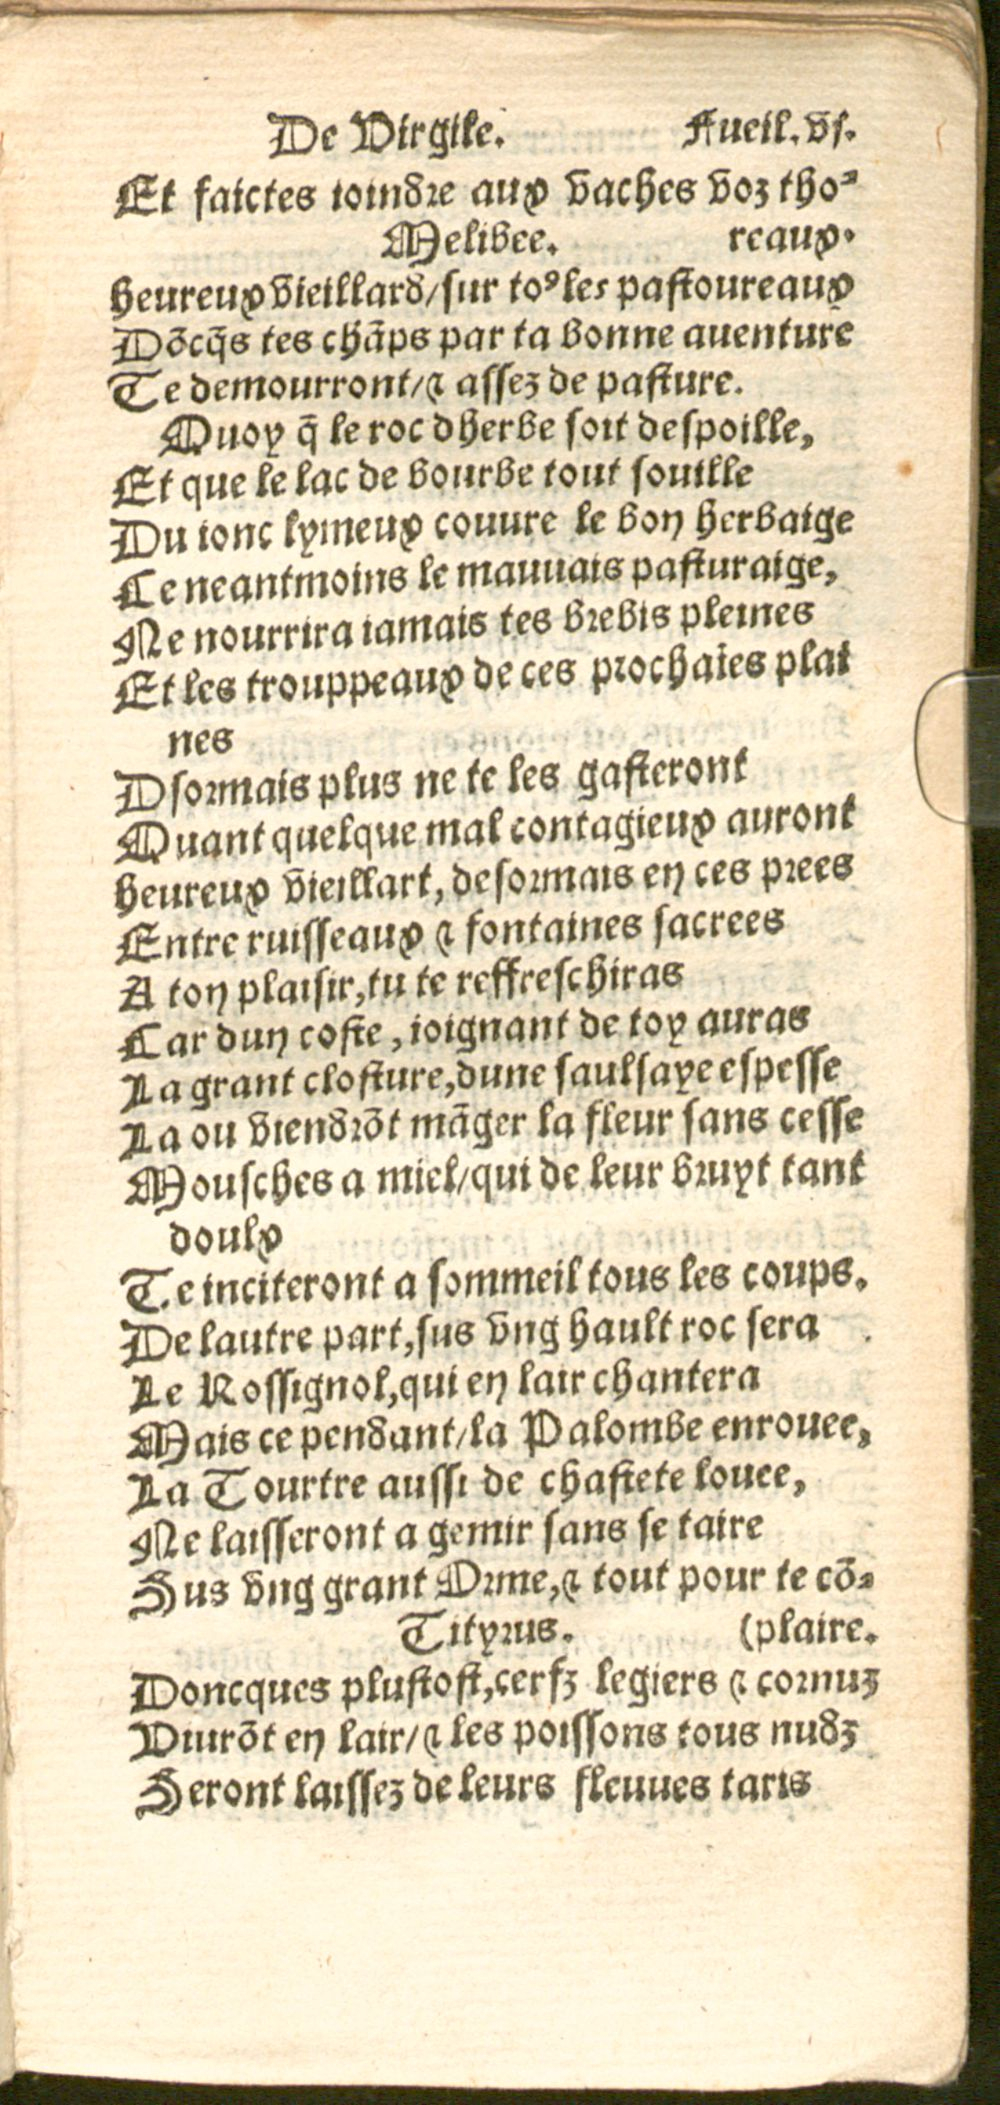 De Virgile. Fueil. vi.
Et faictes ioindre aux vaches voz tho-
Melibee. reaux.
heureux vieillard/sur to⁹les pastoureaux
Dõcq̃s tes chãps par ta bonne auenture
Te demourront/⁊ assez de pasture.
Quoy q̃ le roc dherbe soit despoille,
Et que le lac de bourbe tout souille
Du ionc lymeux couure le bon herbaige
Ce neantmoins le mauuais pasturaige,
Ne nourrira iamais tes brebis pleines
Et les trouppeaux de ces prochaĩes plai
nes
Dsormais plus ne te les gasteront
Quant quelque mal contagieux auront
heureux vieillart, desormais en ces prees
Entre ruisseaux ⁊ fontaines sacrees
A ton plaisir,tu te reffreschiras
Car dun coste, ioignant de toy auras
La grant closture,dune saulsaye espesse
La ou viendrõt mãger la fleur sans cesse
Mousches a miel/qui de leur bruyt tant
doulx
Te inciteront a sommeil tous les coups.
De lautre part,sus vng hault roc sera
Le Rossignol,qui en lair chantera
Mais ce pendant/la Palombe enrouee,
La Tourtre aussi de chastete louee,
Ne laisseront a gemir sans se taire
Sus vng grant Orme,⁊ tout pour te cõ-
Tityrus. (plaire.
Doncques plustost,cerfz legiers ⁊ cornuz
Viurõt en lair/⁊ les poissons tous nudz
Seront laissez de leurs fleuues taris